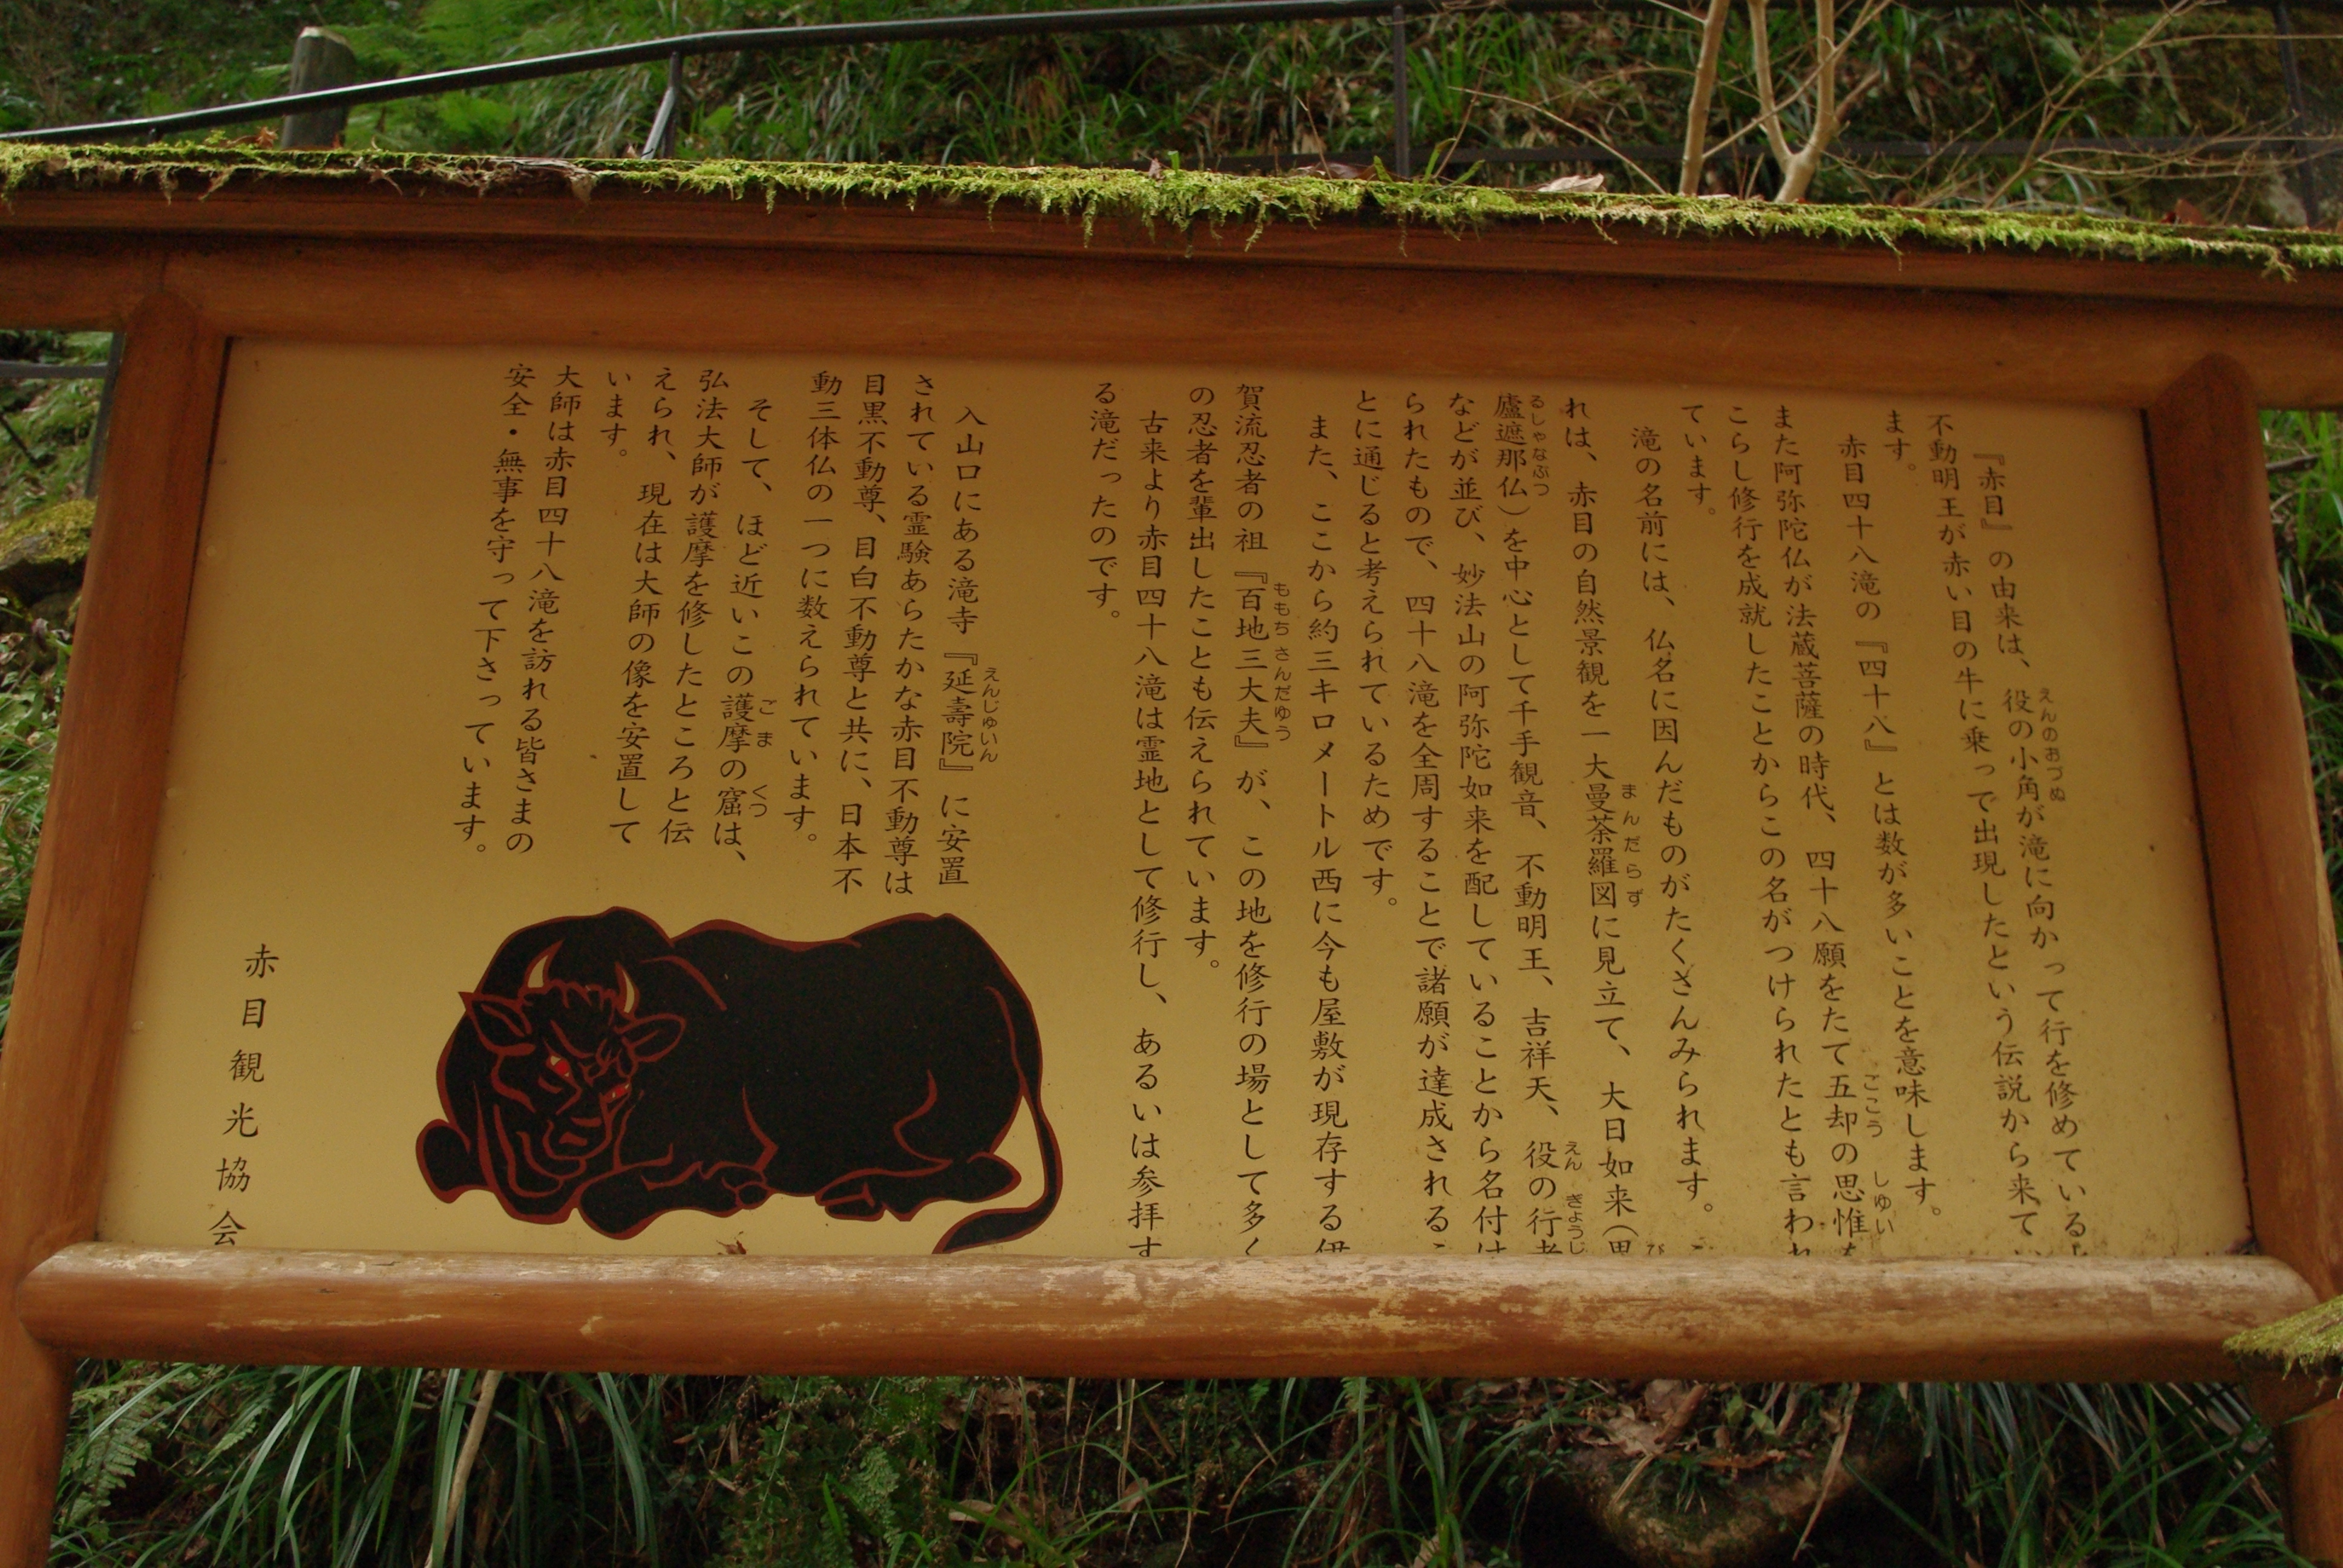 『赤目』の由来は、役の小角が滝に向かって行を修めている
えんのおづぬ
不動明王が赤い目の牛に乗って出現したという伝説から来て
ます。
赤目四十八滝の『四十八』とは数が多いことを意味します。
また阿弥陀仏が法蔵菩薩の時代、四十八願をたて五却の思惟
ごこう しゆい
こらし修行を成就したことからこの名がつけられたとも言わ
ています。
滝の名前には、仏名に因んだものがたくさんみられます。
れは、赤目の自然景観を一大曼荼羅図に見立て、大日如来（
まんだらず
廬遮那仏）を中心として千手観音、不動明王、吉祥天、役の行者
るしゃなぶつ えん ぎょうじ
などが並び、妙法山の阿弥陀如来を配していることから名付け
られたもので、四十八滝を全周することで諸願が達成される
とに通じると考えられているためです。
また、ここから約三キロメートル西に今も屋敷が現存する伊
賀流忍者の祖『百地三大夫』が、この地を修行の場として多く
ももち さんだゆう
の忍者を輩出したことも伝えられています。
古来より赤目四十八滝は霊地として修行し、あるいは参拝す
る滝だったのです。
入山口にある滝寺『延壽院』に安置
えんじゅいん
されている霊験あらたかな赤目不動尊は
目黒不動尊、目白不動尊と共に、日本不
動三体仏の一つに数えられています。
そして、ほど近いこの護摩の窟は、
ごま くつ
弘法大師が護摩を修したところと伝
えられ、現在は大師の像を安置して
います。
大師は赤目四十八滝を訪れる皆さまの
安全・無事を守って下さっています。
赤目観光協会